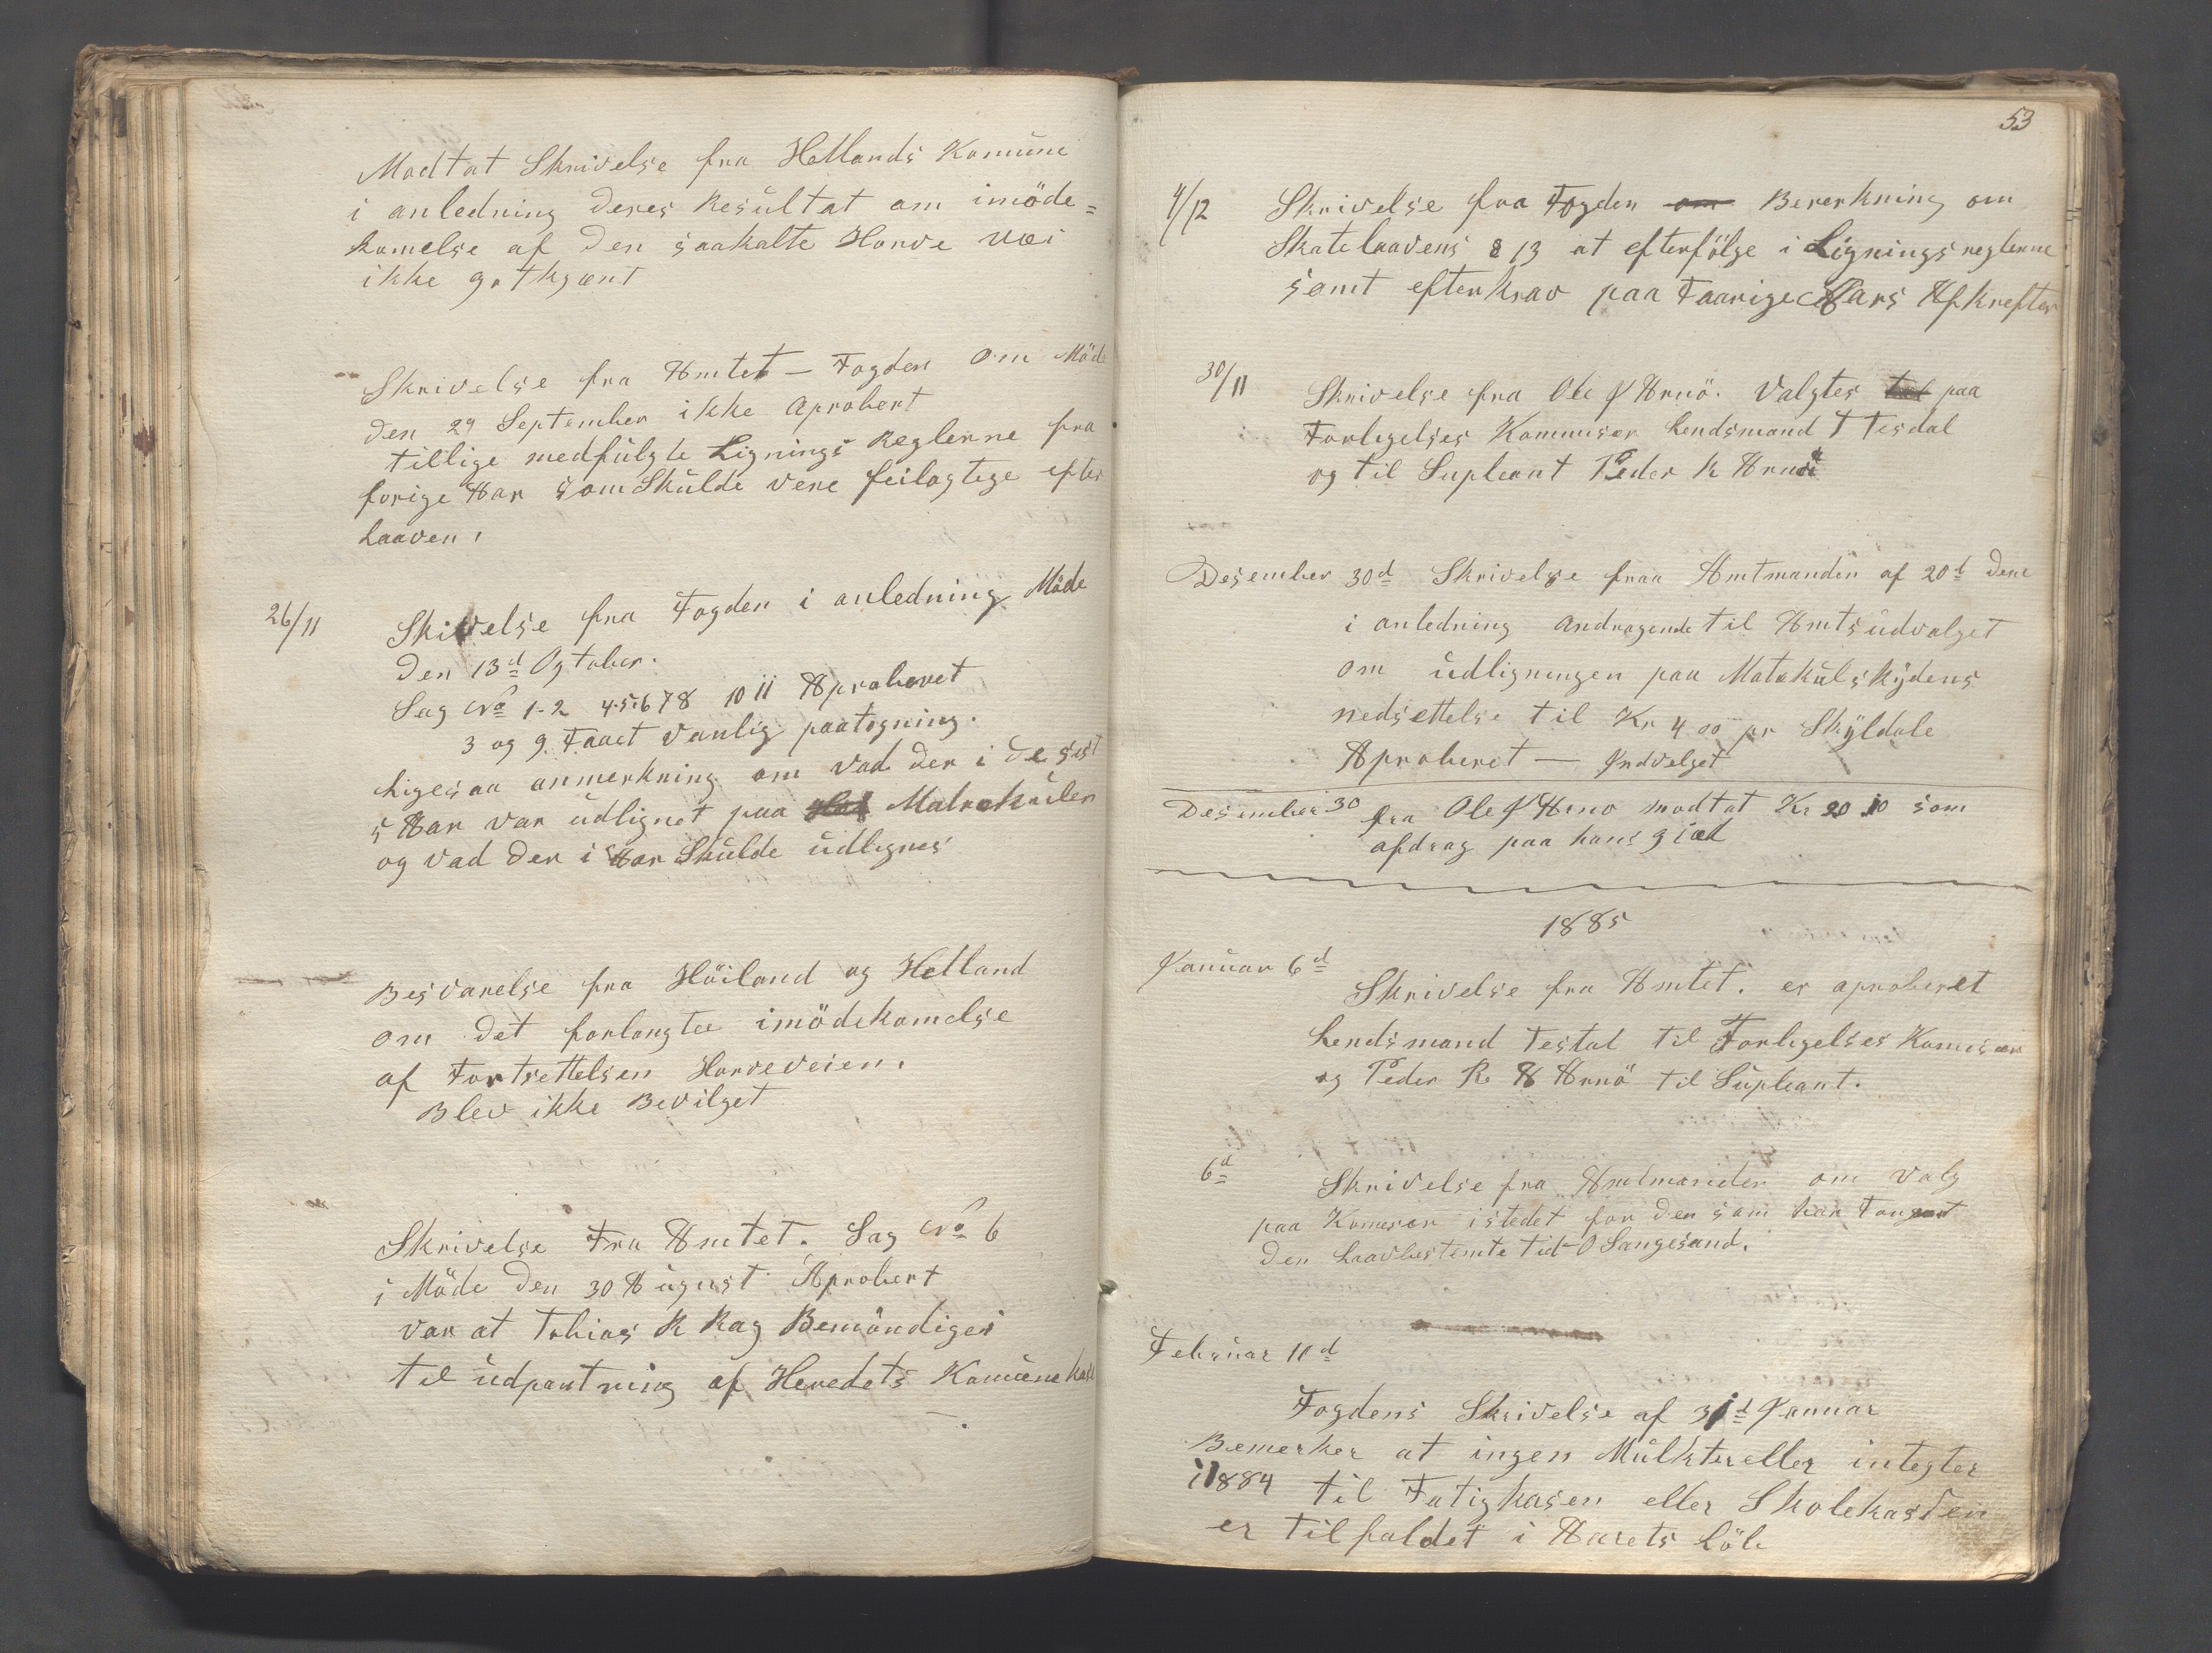 Modtat Skrivelse fra Hetlands Komune
i anledning deres Resultat om imöde=
komelse af den saakalte Horve vei
ikke gotkjent
Skrivelse fra Amtet — Fogden om Möde
den 29 September ikke Aprobert
tillige medfülgte Lignings Reglerne fra
forige Aar som Skulde vere feilagtege efter
Laaven.
26/11 Skivelse fra Fogden i anledning Möde
den 13d Ogtober.
Sag No 1-2 4·5·6 7 8 10 11 Aproberet
3 og 9 Faaet vanlig paategning.
Ligesaa anmerkning om vad der i de sist
5 Aar var udlignet paa Matrekulen
og vad der i Aar Skulde udlignes
Besvarelse fra Höiland og Hetland
om det forlangte imödekomelse
af Fortsettelsen Horveveien.
Blev ikke Bevilget
Skrivelse Fra Amtet. Sag No 6
i Möde den 30 August Aprobert
var at Tobias R Rag Bemöndiges
til udpantning af Heredets Komunekase
53
4/12 Skrivelse fra Fogden om Bererkning om
Skatelaavens § 13 at efterfölge i Ligningsreglerne
samt efterkrav paa Faarige Aars Afskrefter
30/11 Skrivelse fra Ole J Arnö. Valgtes paa
Forligelses Kommiser Lendsmand T Tesdal
og til Supleant Peder R Arnö
Desember 30d Skrivelse fraa Amtmanden af 20d dene
i anledning andragende til Amtsudvalget
om udligningen paa Matekulskydens
nedsettelse til Kr 4 00 pr Skyldale
Aproberet — Indvelget
Desember 30 fra Ole J Arno modtat Kr 20 10 som
afdrag paa hans gjæl
1885
Januar 6d
Skrivelse fra Amtet. er aproberet
Lendsmand Testal til Forligelses Komisær
og Peder R A Arnö til Supleant.
6d Skrivelse fra Amtmanden om valg
paa Komesær istedet for den som har
den Laavbestemte tid O Sangesand.
Februar 11d
Fogdens Skrivelse af 31d Januar
Bemerker at ingen Mulkter eller integter
i 1884 til Fatigkasen eller Skolekassen
er tilfaldet i Aarets Löb